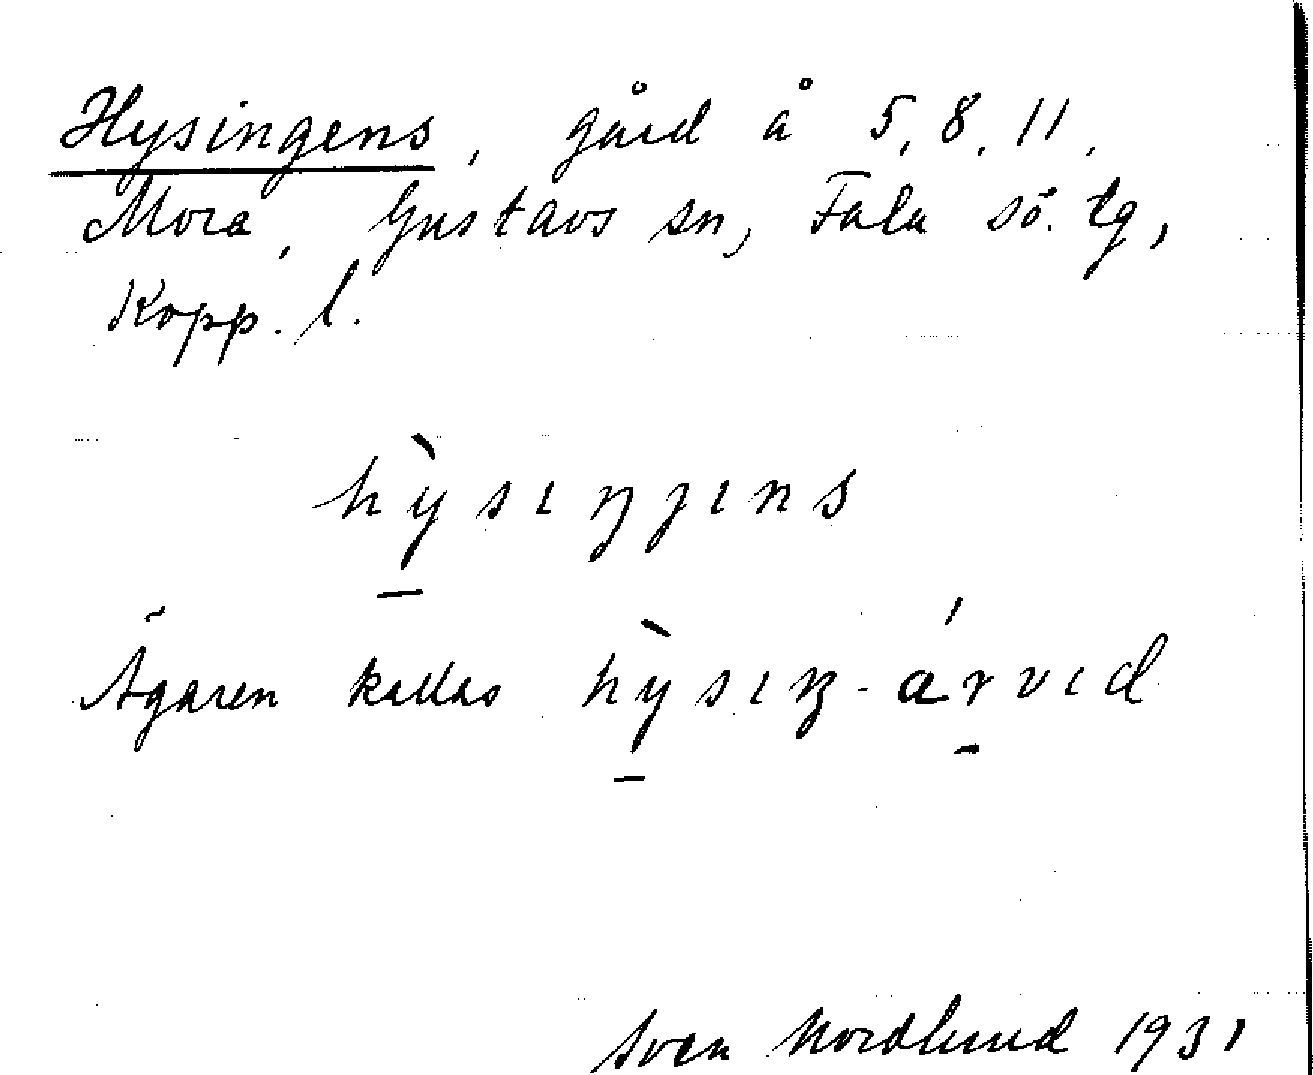 Hysingens, gård å 5, 8, 11,
Mora, Gustavs sn, Falu sö. tg,
Kopp. l.
hỳ̠sıŋȷıns
Ägaren kallas hỳ̠sıŋ-ár̠vıd
Sven Nordlund 1931